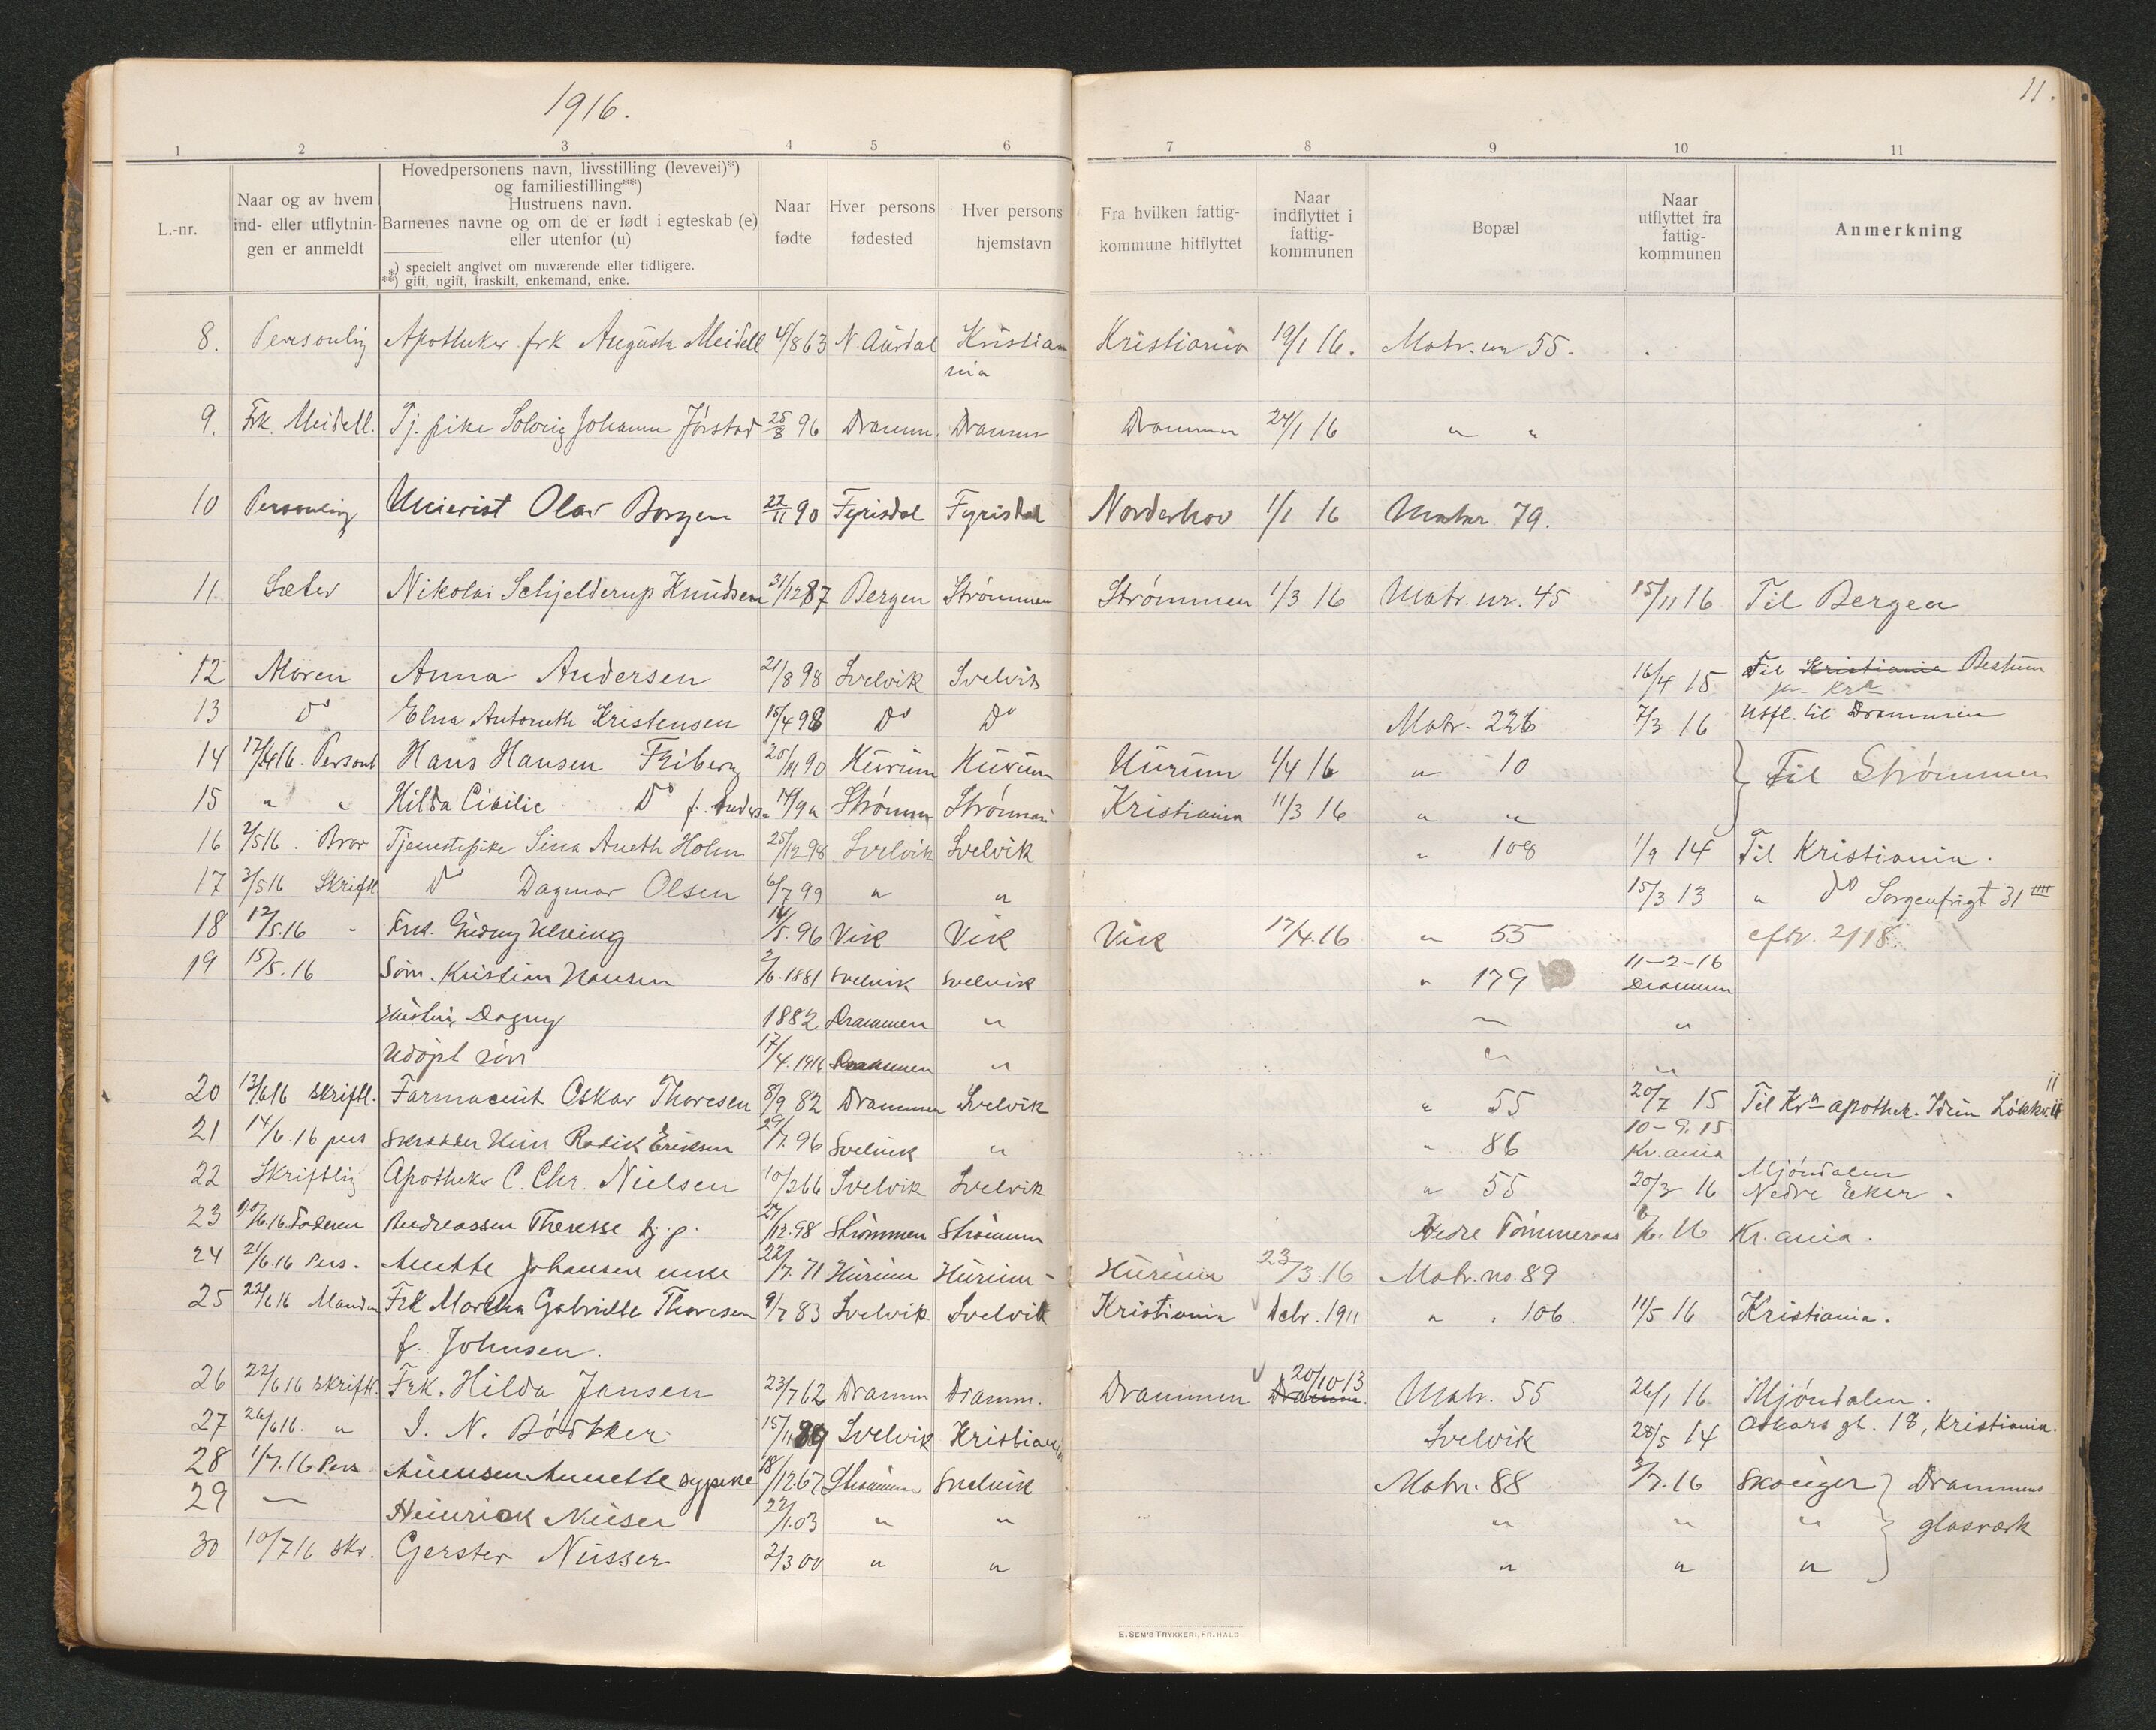 1916.
11.
1 2 3 4 5 6 7 8 9 10 11
L.-nr.
Naar og av hvem
ind- eller utflytnin-
gen er anmeldt
Hovedpersonens navn, livsstilling (levevei)*)
og familiestilling**)
Hustruens navn.
Barnenes navne og om de er født i egteskab (e)
eller utenfor (u)
*) specielt angivet om nuværende eller tidligere.
**) gift, ugift, fraskilt, enkemand, enke.
Naar
fødte
Hver persons
fødested
Hver persons
hjemstavn
Fra hvilken fattig-
kommune hitflyttet
Naar
indflyttet i
fattig-
kommunen
Bopæl
Naar
utflyttet fra
fattig-
kommunen
Anmerkning
8. Personlig Apotheker frk Augusta Meidell 4/8 63 N. Aurdal Kristia Kristiania 19/1 16. Matr. nr 55.
nia
9. Frk. Meidell. Tj. pike Solveig Johanne Jörstad 25/8 96 Dramm. Dramm Drammen 24/1 16 " "
10 Personlig Olav Borgen 22/11 90 Fyrisdal Fyrisdal Norderhov 1/1 16 Matr 79.
11 Sæter Nikolai Schjelderup Knudsen 31/12 87 Bergen Strömmen Strömmen 1/3 16 Matr. nr. 45 15/11 16 Til Bergen
12 Moren Anna Andersen 21/8 98 Svelvik Svelvik 16/4 15 Til Kristiania Bestum
pr. Kra
13 Do Elna Antoneth Kristensen 15/4 98 Do Do Matr. 226 7/3 16 Utfl. til Drammen
14 17/4 16. Personl Hans Hansen Friberg 25/11 90 Hurum Hurum Hurum 1/4 16 " 10 Til Strömmen
15 " " Hilda Cicilie Do f. Anders. Strömm Strömmen Kristiania 11/3 16 " "
16 2/5 16. Bror Tjenestepike Sina Aneth Holm 25/12 98 Svelvik Svelvik " 108 1/9 14 Til Kristiania.
17 3/5 16 Skriftl Do Dagmar Olsen 6/7 99 " " 15/3 13 " do Sorgenfrigt 31 IIII
18 12/5.16 " Frk. Gudny Ulving /5. 96 Vik Vik Vik 17/4.16 " 55 eftr. 2/18
19 15/5.16 Søm. Kristian Hansen 2/6.1881 Svelvik Svelvik " 179 11-2-16
Drammen
Hustru Dagny 1882 Drammen " " "
Udöpt sön 17/4.1916 Drammen " " "
20 13/6 16 skriftl. Farmaceut Oskar Thoresen 8/9 82 Drammen Svelvik " 55 20/7 15 Til Kra apothek. Idun Lökkv. 11
21 14/6.16 pers Skrædder Rodik Eriksen 29/7. 96 Svelvik " " 86 10-9.15
Kr.ania
22 Skriftlig Apotheker C. Chr. Nielsen 10/2 66 Svelvik Svelvik " 55 20/3 16 Mjöndalen
Nedre Eker.
23 20/6 16. Faderen Andreassen Therese tj.p. 27/12.98 Strömmen Strömmen Nedre Tömmeraas 6/6. 16 Kr.ania.
24 21/6.16 Pers. Anette Johansen enke 22/7. 71 Hurum Hurum Hurum 23/3.16 Matr. no. 89
25 22/6 16 Manden Frk Martha Gabrielle Thoresen 9/7 83 Svelvik Svelvik Kristiania Debr. 1911 " " 106. 11/5 16 Kristiania.
f. Johnsen.
26 22/6 16 skriftl. Frk. Hilda Jansen 23/7 62 Dramm Dramm. Drammen Dramm. 20/10 13 Matr. 55 26/1 16 Mjöndalen.
27 26/6 16. " I. N. Bödtker 15/11 89 Svelvik Kristiania Svelvik 28/5 14 Oskars gt. 18, Kristiania.
28 1/7.16 Pers Annette sypike 18/12.67 Strömm Svelvik Matr. 88 3/7.16 Skouger Drammens
29 — Heinrick 22/1.03 " " " " " glasværk
30 10/7 16 skr. Gerster Nusser 2/3 00 " " " " "
E. SEM'S TRYKKERI, FR. HALD